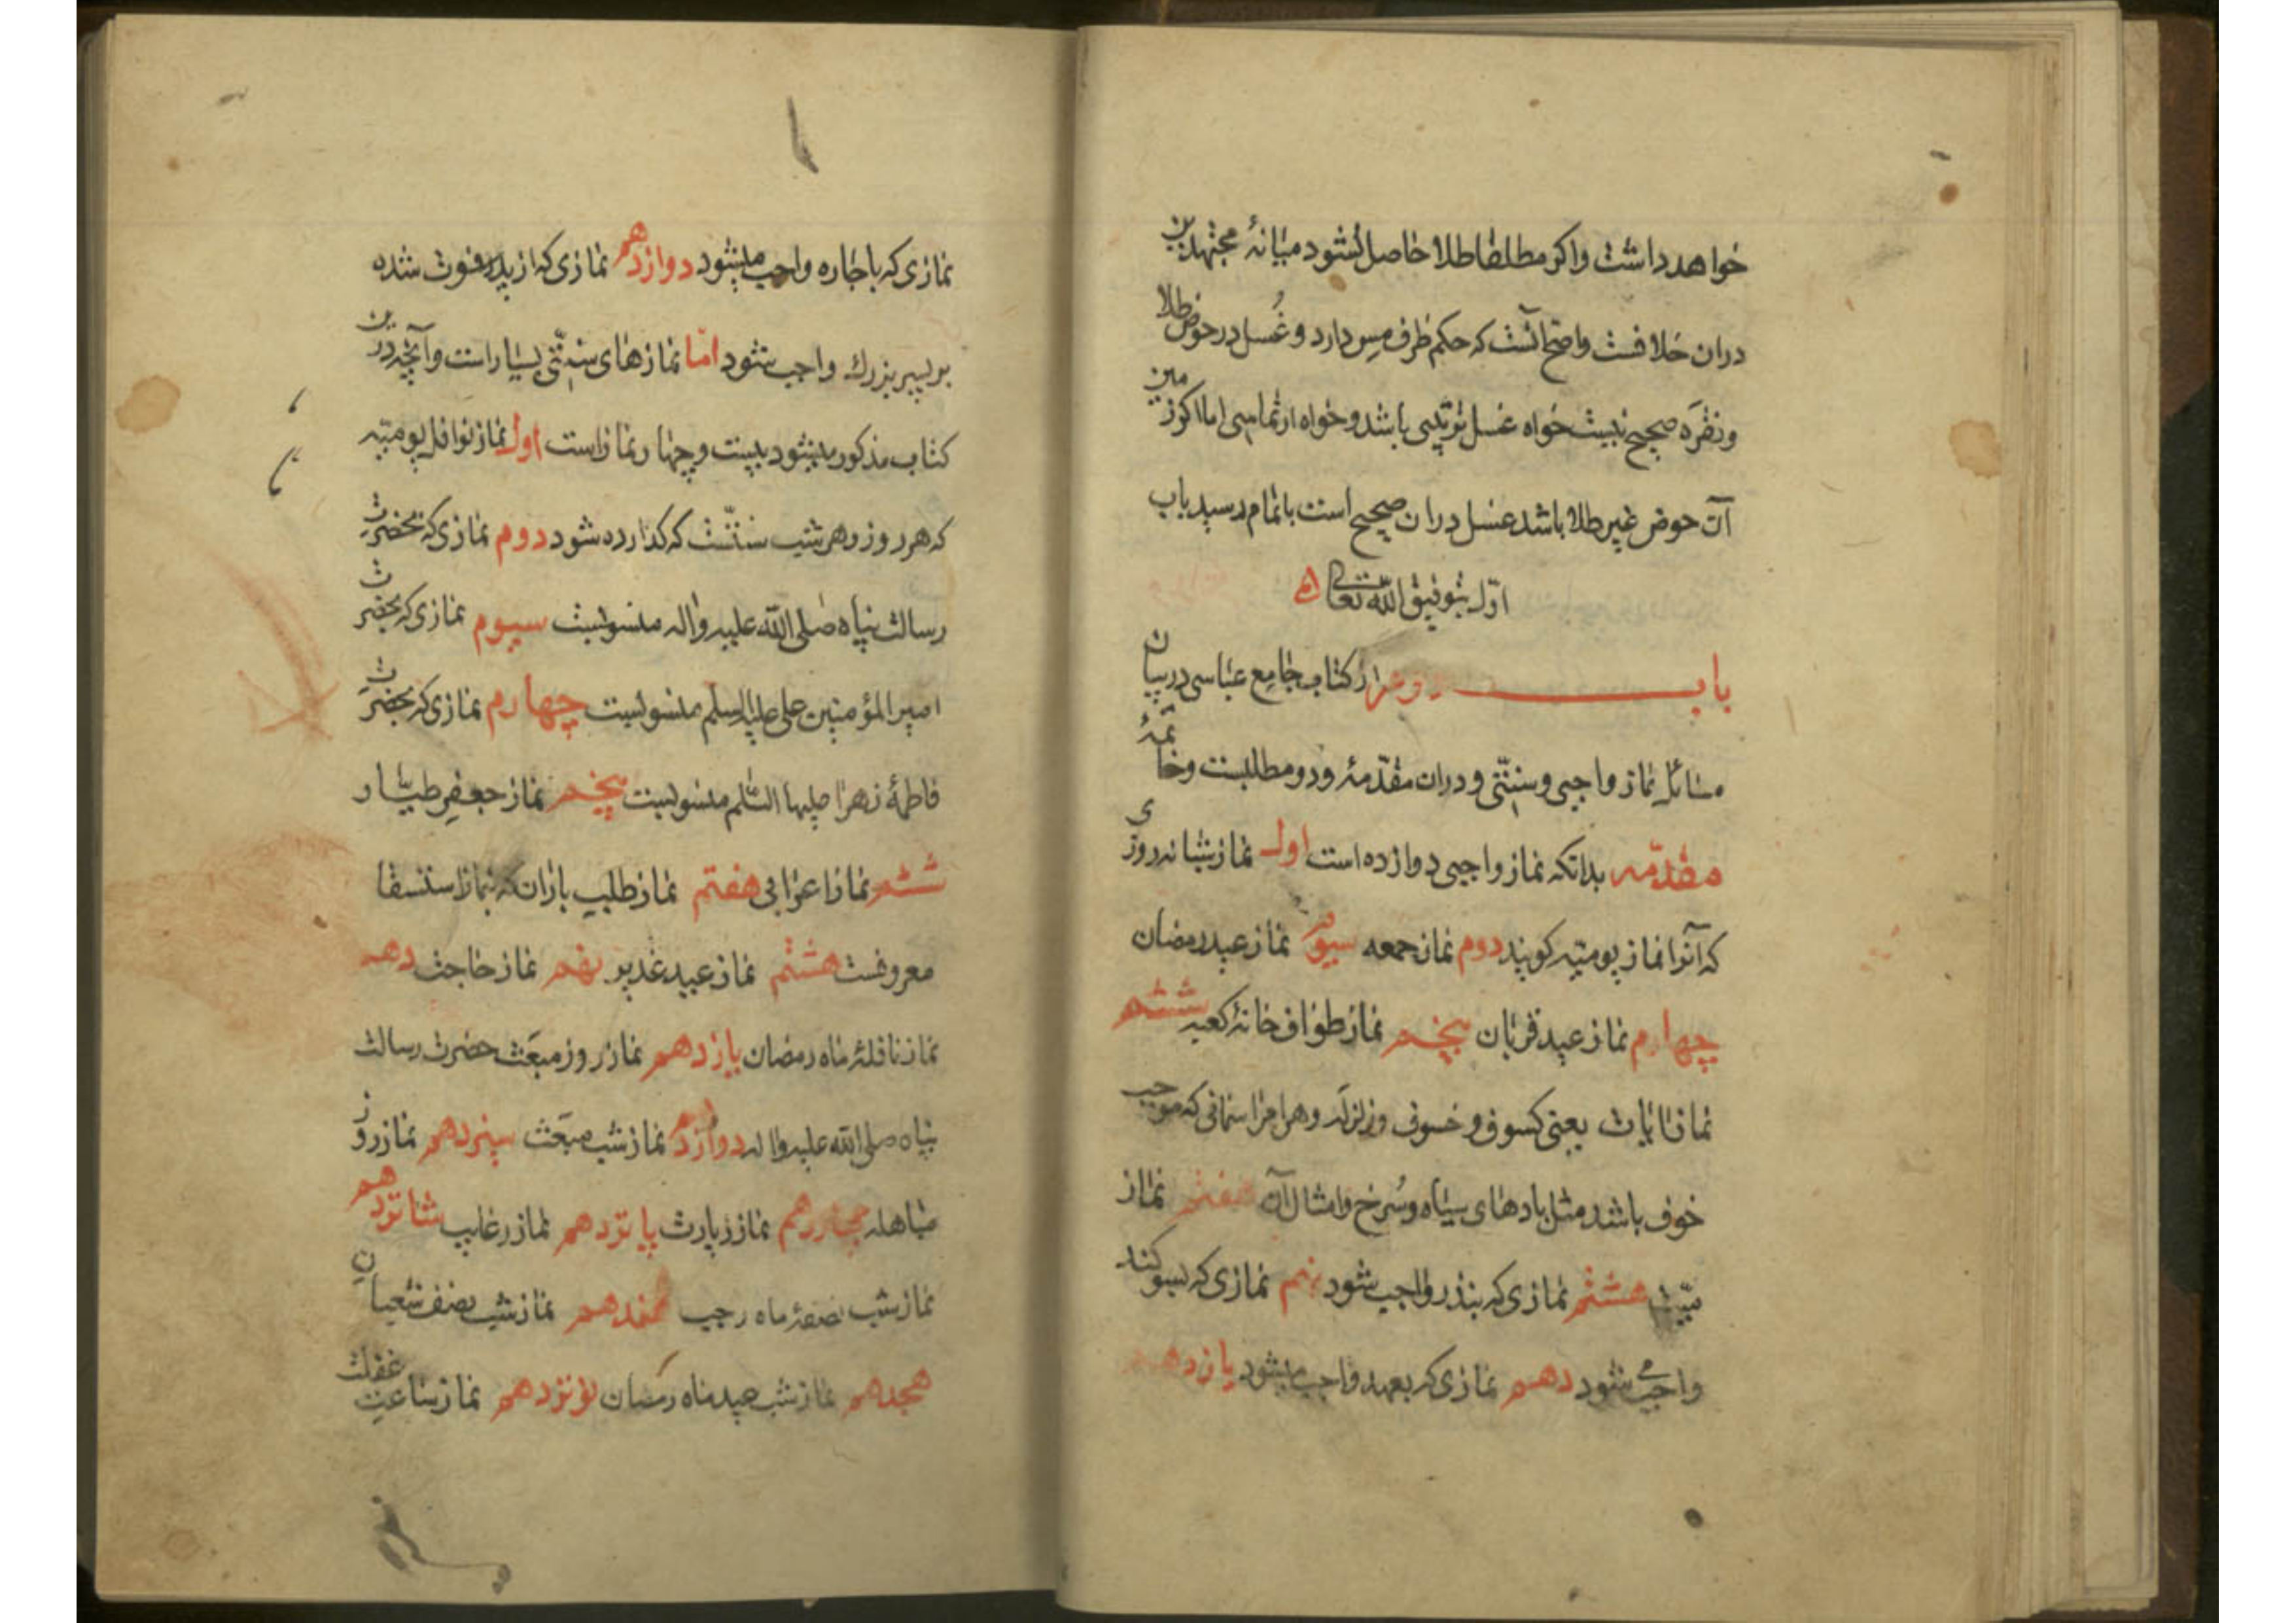 خواهد داشت واكر مطلقا طلا حاصل نشود ميانهٔ مجتهدين
دران خلافست واصح آنست كه حكم ظرف مس دارد و غُسل در حوض طلا
ونقرَه صحيح نيست خواه غسل ترتيبى باشد و خواه ارتماسى اما اكر زمين
آن حوض غير طلا باشد غسل دران صحيح است باتمام رسيد باب
اوّل بتوفيق اللّه تعالى
باب دوم از كتاب جامع عباسى در بيان
مسائل نماز واجبى وسنّتى ودران مقدّمهٔ ودو مطلبست وخاتمهٔ
مقدّمه بدانكه نماز واجبى دوازده است اول نماز شبانه روزى
كه آنرا نماز يوميّه كويند دوم نماز جمعه سيوم نماز عيد رمضان
چهارم نماز عيد قربان پنجم نماز طواف خانهٔ كعبه ششم
نماز ايات يعنى كسوف و خسوف و زلزله و هر امر اسمانى كه موجب
خوف باشد مثل بادهاى سياه وسُرخ وامثال آن هفتم نماز
ميّت هشتم نمازى كه بنذر واجب شود نهم نمازى كه بسوكند
واجب مى شود دهم نمازى كه بعهد واجب ميشود يازدهم
نمازى كه باجاره واجب ميشود دوازدهم نمازى كه از پدر فوت شده
بر پسر بزرك واجب شود امّا نمازهاى سنّتى بسيار است وآنچه درين
كتاب مذكور ميشود بيست و چهار نماز است اول نماز نوافل يوميّه
كه هر روز و هر شب سنّتست كه كذارده شود دوم نمازى كه بحضرت
رسالت پناه صلى اللّه عليه واله منسوبست سيوم نمازى كه بحضرت
امير المؤمنين على عليه السلم منسوبست چهارم نمازى كه بحضرت
فاطمهٔ زهرا عليها السّلم منسوبست پنجم نماز جعفر طيّار
ششم نماز اعرابى هفتم نماز طلب باران كه بنماز استسقا
معروفست هشتم نماز عيد غدير نهم نماز حاجت دهم
نماز نافلهٔ ماه رمضان يازدهم نماز روز مبعَث حضرت رسالت
پناه صلى اللّه عليه واله دوازدهم نماز شب مبعَث سيزدهم نماز روز
مباهله چهاردهم نماز زيارت پانزدهم نماز رغايب شانزدهم
نماز شب نصفهٔ ماه رجب هفدهم نماز شب نصف شعبان
هجدهم نماز شب عيد ماه رمضان نوزدهم نماز ساعت غفلت